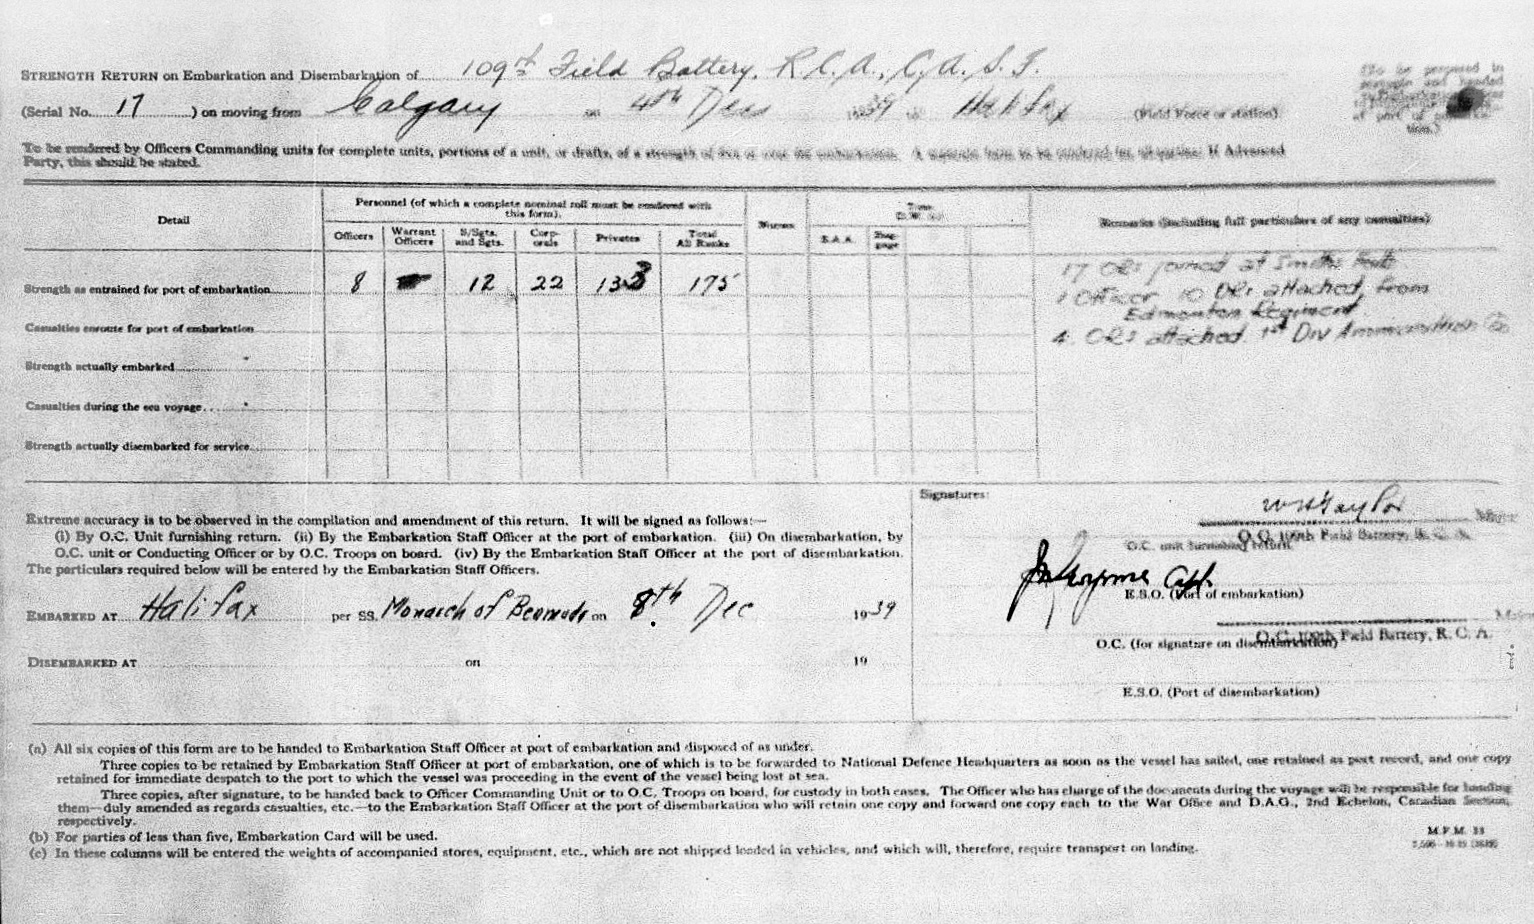 STRENGTH RETURN on Embarkation and Disembarkation of 109th Field Battery, R.C.A., C.A.S.F.
(Serial No. 17 ) on moving from Calgary on 4th Dec 1939 Halifax (Field Force or station)
(To be prepared in
at port of
tion.)
To be rendered by Officers Commanding units for complete units, portions of a unit, or drafts, of a strength of five or over on embarkation. A separate form to be rendered for all parties. If Advanced
Party, this should be stated.
Detail
Personnel (of which a complete nominal roll must be rendered with
this form).
Officers
Warrant
Officers
S/Sgts.
and Sgts.
Corp-
orals
Privates
Total
All Ranks
Nurses
Tons
S.A.A.
Bag-
gage
Remarks (including full particulars of any casualties)
Strength as entrained for port of embarkation 8 12 22 133 175
Casualties enroute for port of embarkation
Strength actually embarked
Casualties during the sea voyage
Strength actually disembarked for service
17 ORs joined at Smiths Falls
1 Officer 10 ORs attached, from
Edmonton Regiment.
4 ORs attached. 1st Div Ammunition Co
Extreme accuracy is to be observed in the compilation and amendment of this return. It will be signed as follows:—
(i) By O.C. Unit furnishing return. (ii) By the Embarkation Staff Officer at the port of embarkation. (iii) On disembarkation, by
O.C. unit or Conducting Officer or by O.C. Troops on board. (iv) By the Embarkation Staff Officer at the port of disembarkation.
The particulars required below will be entered by the Embarkation Staff Officers.
EMBARKED AT Halifax per SS. Monarch of Bermuda on 8th Dec 1939
DISEMBARKED AT on 19
Signatures:
W H Taylor Major
O.C. 109th Field Battery, R.C.A.
O.C. unit furnishing return
Capt.
E.S.O. (Port of embarkation)
Major
O.C. 109th Field Battery, R.C.A.
O.C. (for signature on disembarkation)
E.S.O. (Port of disembarkation)
(a) All six copies of this form are to be handed to Embarkation Staff Officer at port of embarkation and disposed of as under.
Three copies to be retained by Embarkation Staff Officer at port of embarkation, one of which is to be forwarded to National Defence Headquarters as soon as the vessel has sailed, one retained as port record, and one copy
retained for immediate despatch to the port to which the vessel was proceeding in the event of the vessel being lost at sea.
Three copies, after signature, to be handed back to Officer Commanding Unit or to O.C. Troops on board, for custody in both cases. The Officer who has charge of the documents during the voyage will be responsible for handing
them—duly amended as regards casualties, etc.—to the Embarkation Staff Officer at the port of disembarkation who will retain one copy and forward one copy each to the War Office and D.A.G., 2nd Echelon, Canadian Section,
respectively.
(b) For parties of less than five, Embarkation Card will be used.
(c) In these columns will be entered the weights of accompanied stores, equipment, etc., which are not shipped loaded in vehicles, and which will, therefore, require transport on landing.
M.F.M. 33